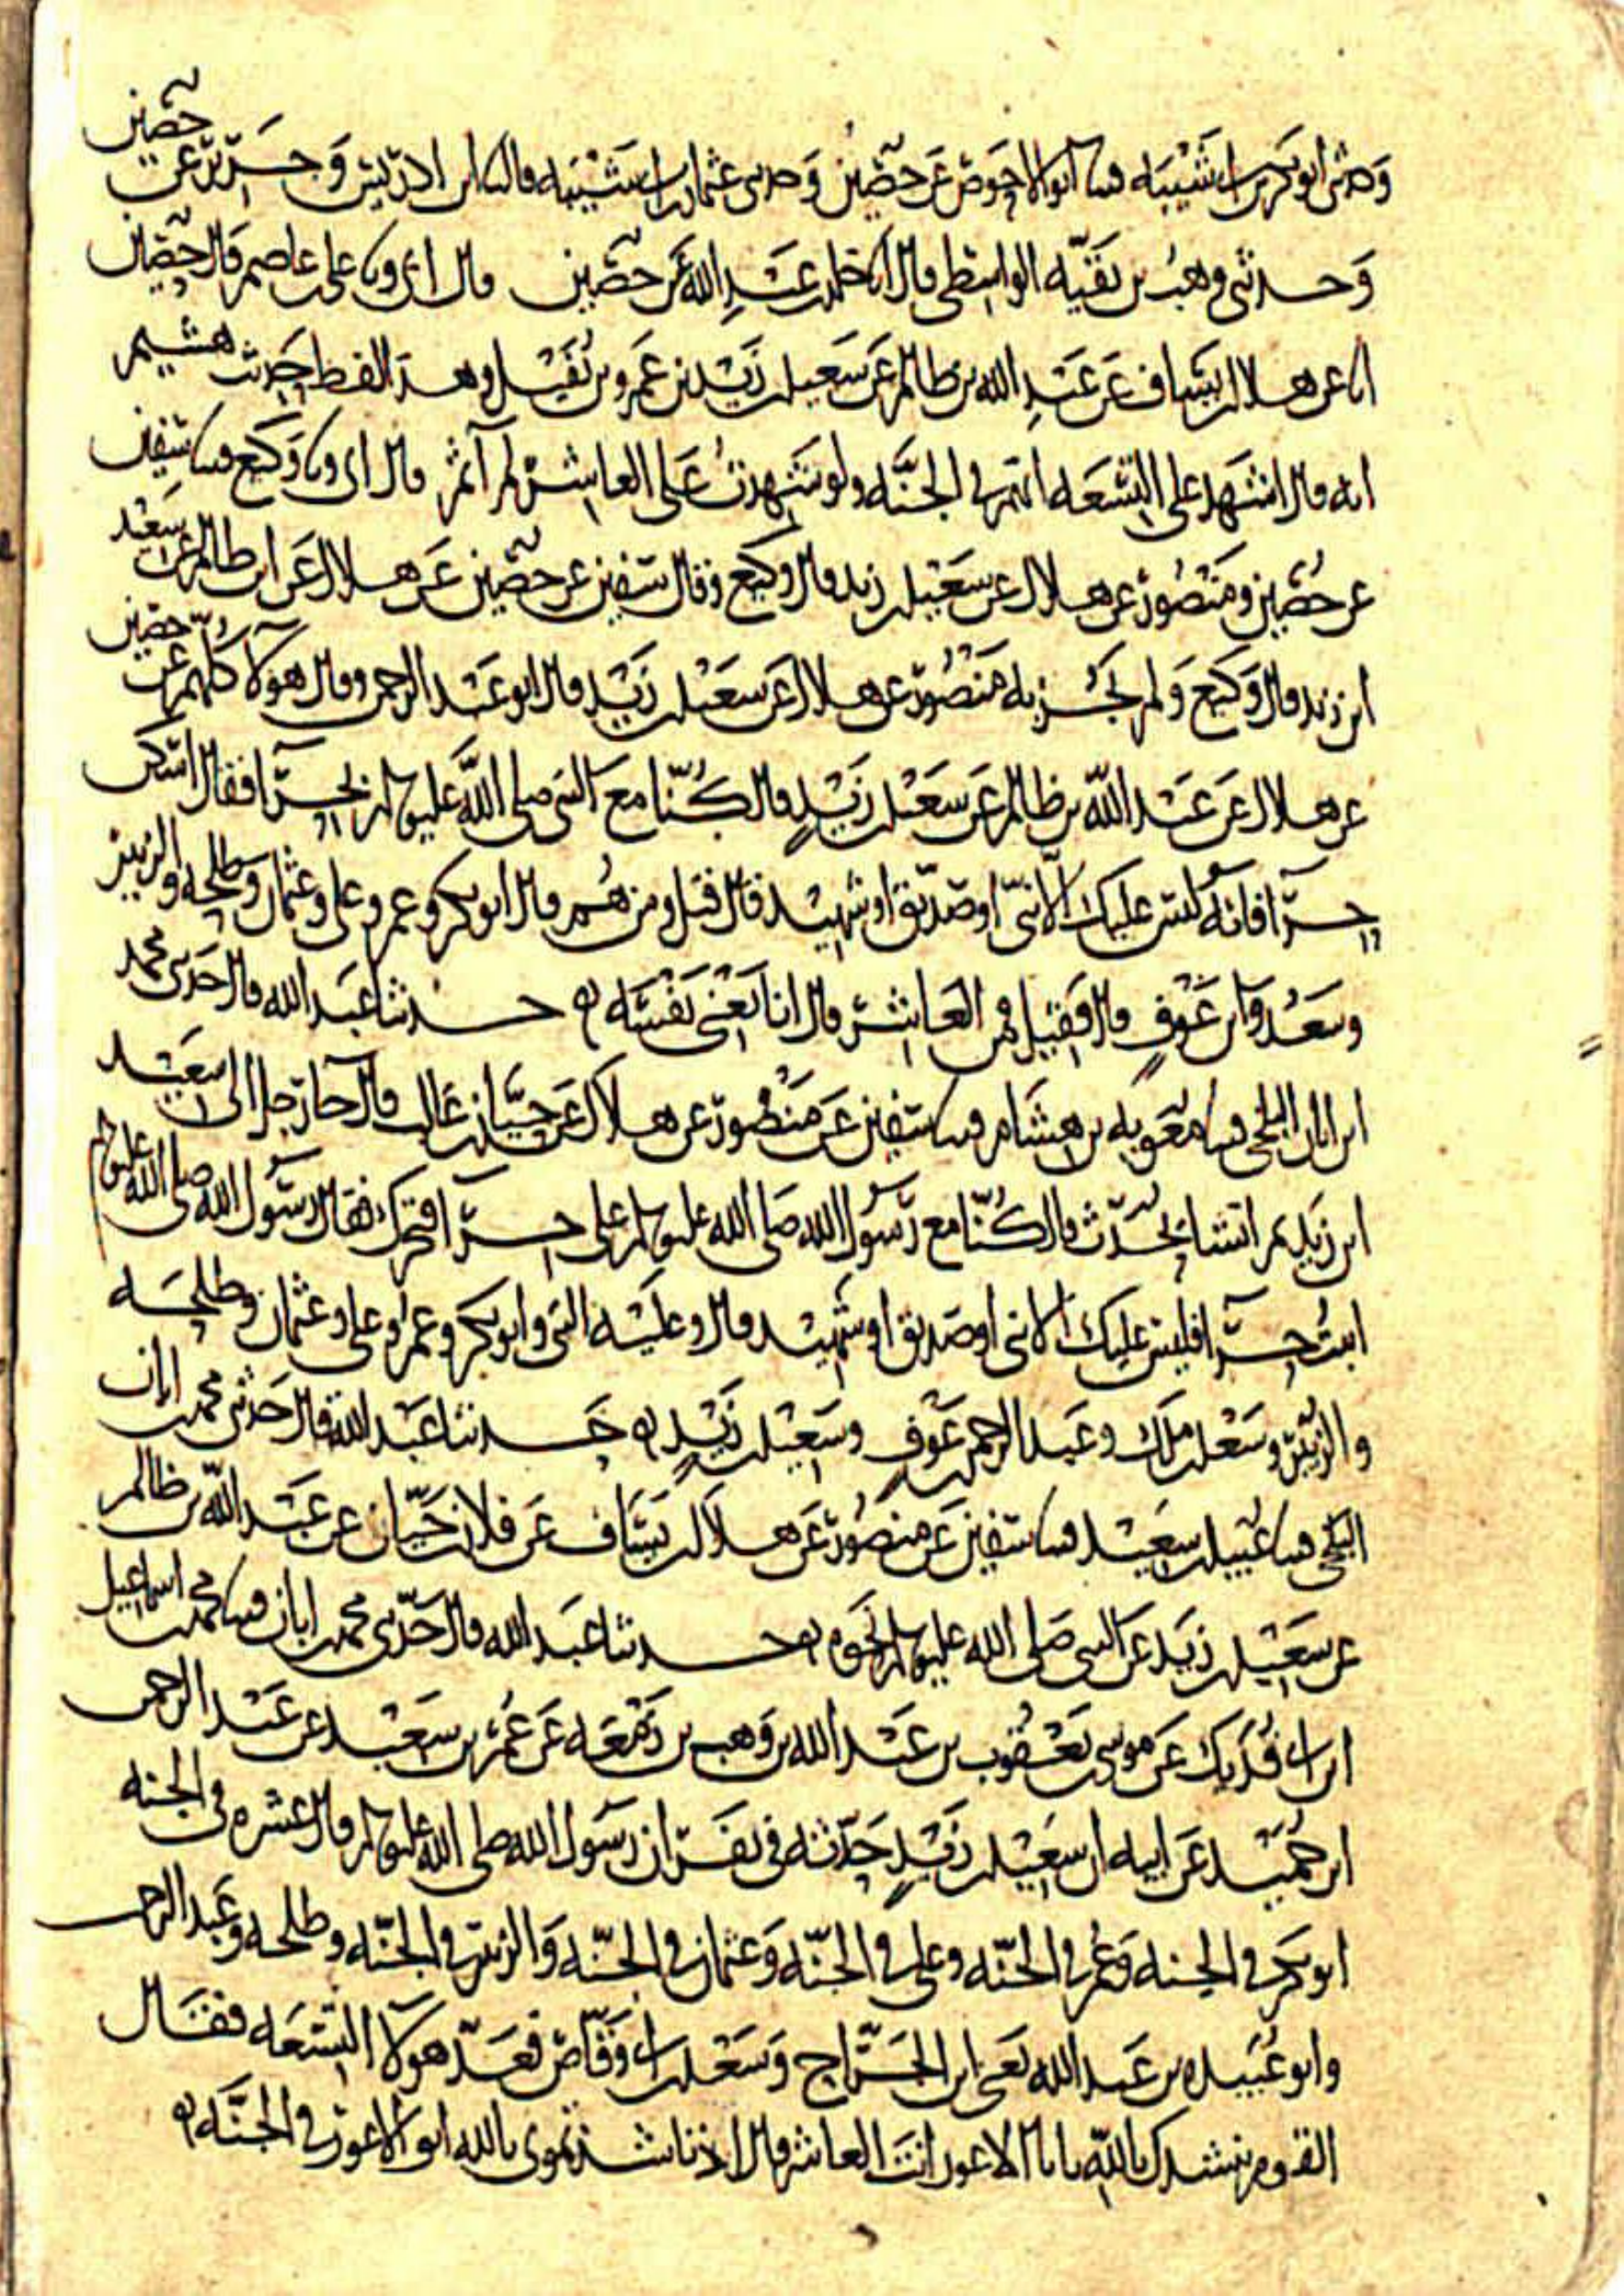 وحدثنى ابو بكر بن ابى شيبه قثنا ابو الاحوص عن حصين وحدثنى عثمان بن ابى شيبه قال ثنا ابن ادريس وجرير عن حصين
وحدثنى وهب بن بقيه الواسطى قال انا خلد بن عبد الله عن حصين قال ابى ونا على بن عاصم قال حصين
انا عن هلال بن يساف عن عبد الله بن ظالم عن سعيد بن زيد بن عمرو بن نفيل وهذا لفظ حديث هشيم
انه قال اشهد على التسعه انهم فى الجنه ولو شهدت على العاشر لم آثم قال ابى ونا وكيع قثنا سفين
عن حصين ومنصور عن هلال عن سعيد بن زيد قال وكيع وقال سفين عن حصين عن هلال عن ابن ظالم عن سعيد
ابن زيد قال وكيع ولم يجز به منصور عن هلال عن سعيد بن زيد قال ابو عبد الرحمن وقال هولا كلهم عن حصين
عن هلال عن عبد الله بن ظالم عن سعيد بن زيد قال كنا مع النبى صلى الله عليه وسلم بحرا فقال اسكن
حرا فانه ليس عليك الا نبى او صديق او شهيد قال قيل ومن هم قال ابو بكر وعمر وعلى وعثمان وطلحه والزبير
وسعد وابن عوف قال فقيل فمن العاشر قال انا يعنى نفسه حدثنا عبد الله قال حدثنى محمد
ابن ابان البلخى قثنا معويه بن هشام قثنا سفين عن منصور عن هلال عن حيان بن غالب قال جا رجل الى سعيد
ابن زيد ثم انشا يحدث قال كنا مع رسول الله صلى الله عليه وسلم على حرا فتحرك فقال رسول الله صلى الله عليه وسلم
اثبت حرا فليس عليك الا نبى او صديق او شهيد قال وعليه النبى وابو بكر وعمر وعلى وعثمان وطلحه
والزبير وسعد بن ملك وعبد الرحمن بن عوف وسعيد بن زيد حدثنا عبد الله قال حدثنى محمد بن ابان
البلخى قثنا عبيد بن سعيد قثنا سفين عن منصور عن هلال بن يساف عن فلان بن حيان عن عبد الله بن ظالم
عن سعيد بن زيد عن النبى صلى الله عليه وسلم نحوه حدثنا عبد الله قال حدثنى محمد بن ابان قثنا محمد بن اسماعيل
ابن ابى فديك عن موسى بن يعقوب بن عبد الله بن وهب بن زمعه عن عمر بن سعيد عن عبد الرحمن
ابن حميد عن ابيه ان سعيد بن زيد حدثه فى نفر ان رسول الله صلى الله عليه وسلم قال عشره فى الجنه
ابو بكر فى الجنه وعمر فى الجنه وعلى فى الجنه وعثمان فى الجنه والزبير فى الجنه وطلحه وعبد الرحمن
وابو عبيده بن عبد الله يعنى ابن الجراح وسعد بن ابى وقاص فعد هولا التسعه فقال
القوم ننشدك بالله يا با الاعور انت العاشر قال اذ ناشدتمونى بالله ابو الاعور فى الجنه